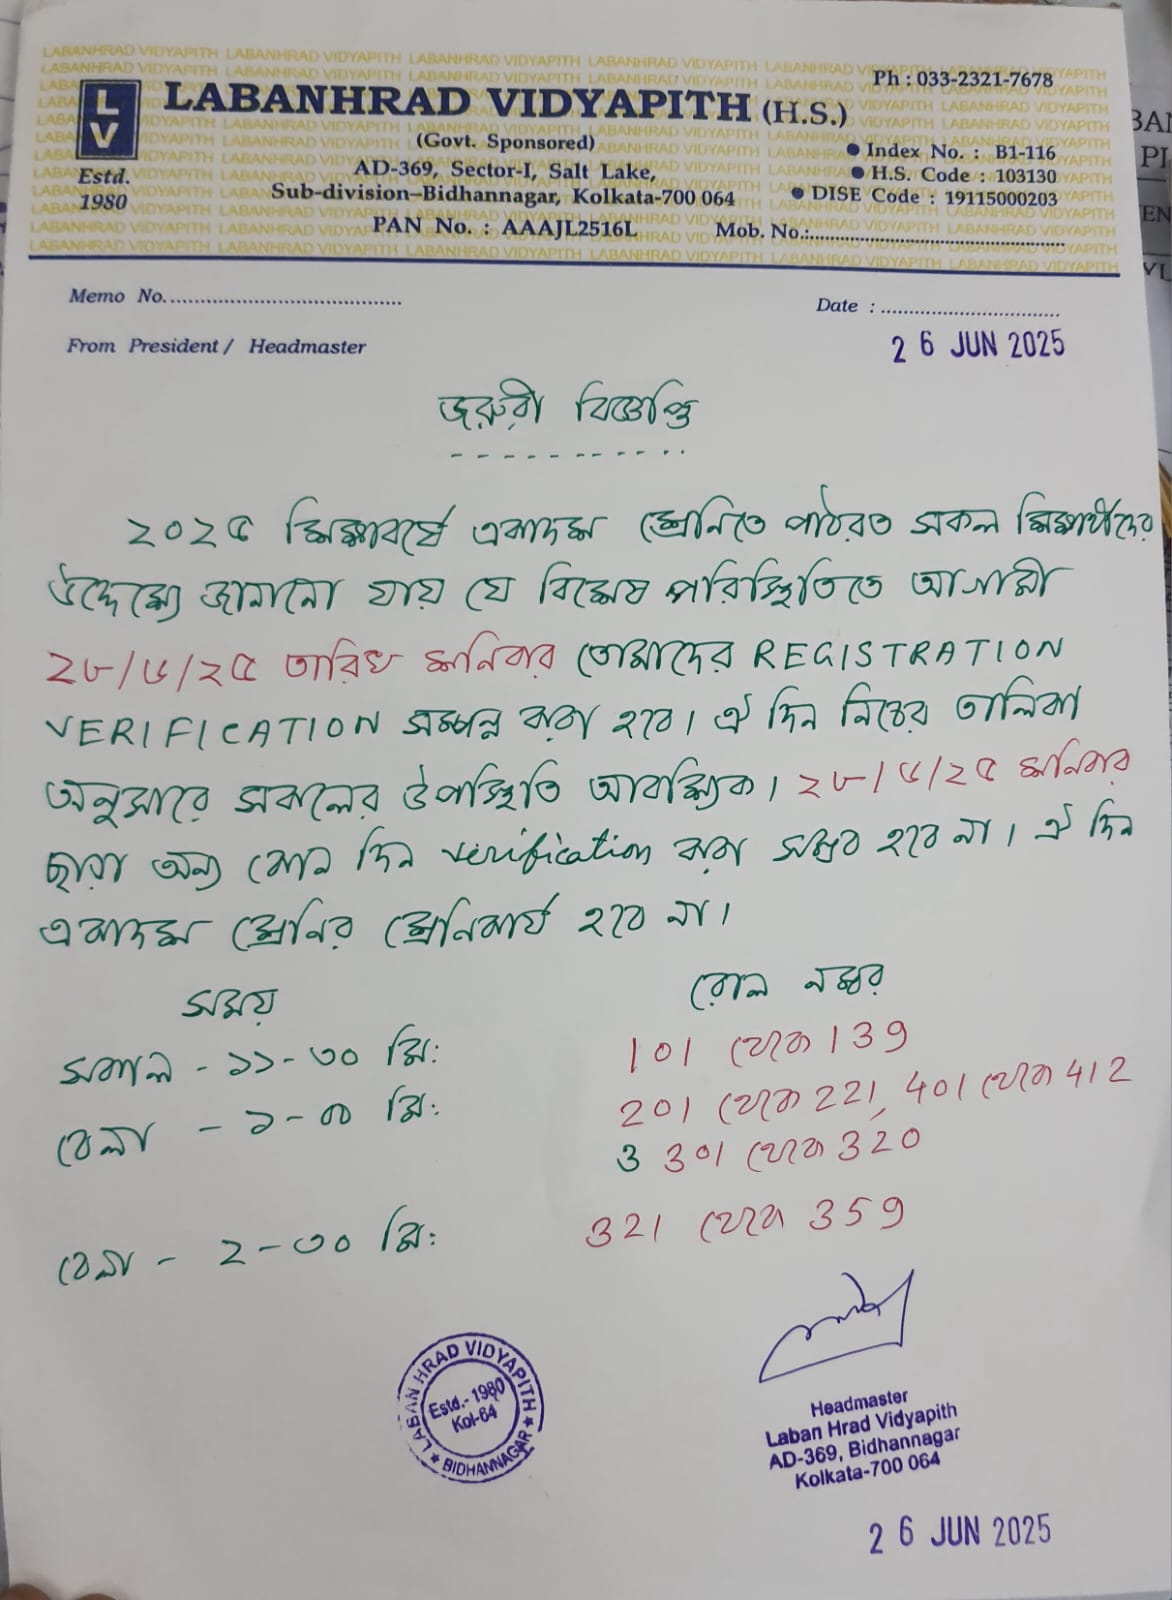 Ph : 033-2321-7678
LV
LABANHRAD VIDYAPITH (H.S.)
(Govt. Sponsored)
Estd.
1980
AD-369, Sector-I, Salt Lake,
Sub-division-Bidhannagar, Kolkata-700 064
PAN No. : AAAJL2516L
Index No. : B1-116
H.S. Code : 103130
DISE Code : 19115000203
Mob. No.:
Memo No.
Date :
From President / Headmaster
26 JUN 2025
জরুরী বিজ্ঞপ্তি
২০২৫ শিক্ষাবর্ষে একাদশ শ্রেনিতে পাঠরত সকল শিক্ষার্থীদের
উদ্দেশ্যে জানানো যায় যে বিশেষ পরিস্থিতিতে আগামী
২৮/৬/২৫ তারিখ শনিবার তোমাদের REGISTRATION
VERIFICATION সম্পন্ন করা হবে। ঐ দিন নিম্নের তালিকা
অনুসারে সকলের উপস্থিতি আবশ্যিক। ২৮/৬/২৫ শনিবার
ছাড়া অন্য কোন দিন verification করা সম্ভব হবে না। ঐ দিন
একাদশ শ্রেনির শ্রেনিকার্য হবে না।
সময় রোল নম্বর
সকাল - ১১-৩০ মি: 101 থেকে 139
বেলা - ১-০০ মি: 201 থেকে 221, 401 থেকে 412
ও 301 থেকে 320
বেলা - ২-৩০ মি: 321 থেকে 359
LABAN HRAD VIDYAPITH
Estd.- 1980
Kol-64
BIDHANNAGAR
Headmaster
Laban Hrad Vidyapith
AD-369, Bidhannagar
Kolkata-700 064
26 JUN 2025